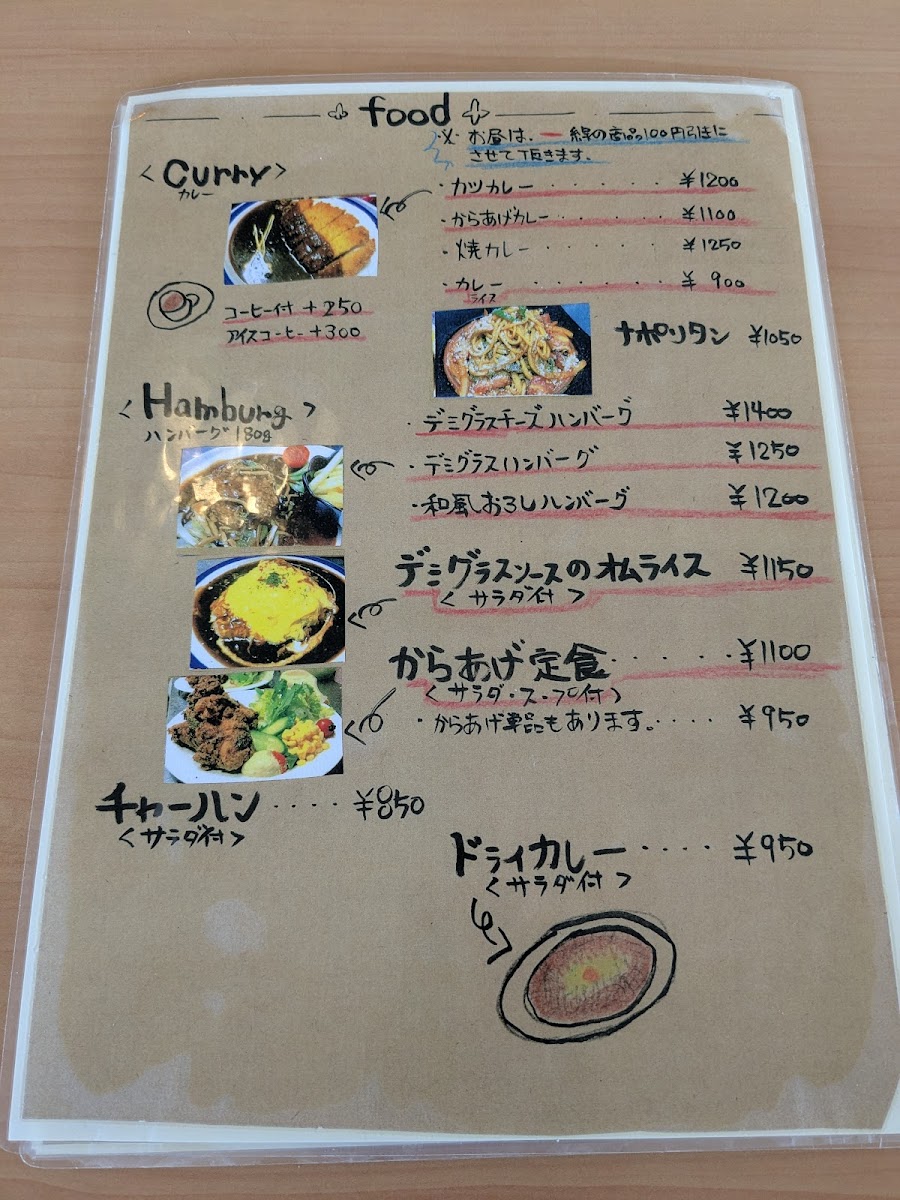 food
※ お昼は、ー 線の商品100円引きに
させて頂きます。
<Curry>
カレー
・カツカレー・・・・・・¥1200
・からあげカレー・・・・・¥1100
・焼カレー・・・・・・¥1250
・カレー・・・・・・¥900
ライス
コーヒー付 +250
アイスコーヒー +300
ナポリタン ¥1050
<Hamburg>
ハンバーグ 180g
・デミグラスチーズハンバーグ ¥1400
・デミグラスハンバーグ ¥1250
・和風おろしハンバーグ ¥1200
デミグラスソースのオムライス ¥1150
<サラダ付>
からあげ定食・・・・・¥1100
(サラダ・スープ付)
・からあげ単品もあります。・・・・¥950
チャーハン・・・・¥850
<サラダ付>
ドライカレー・・・・¥950
<サラダ付>